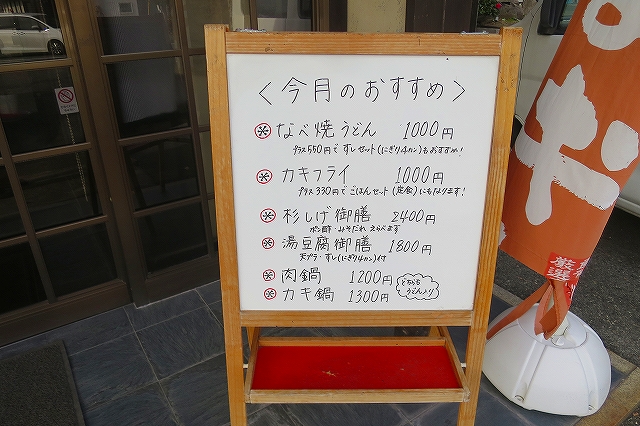 ＜今月のおすすめ＞
なべ焼うどん 1000円
プラス550円で すしセット(にぎり4カン)もおすすめ!
カキフライ 1000円
プラス330円で ごはんセット(定食)にもなります!
杉しげ御膳 2400円
ポン酢・みそだれ えらべます
湯豆腐御膳 1800円
天プラ・すし(にぎり4カン)付
肉鍋 1200円
カキ鍋 1300円
どちらも
うどん入り
厳選